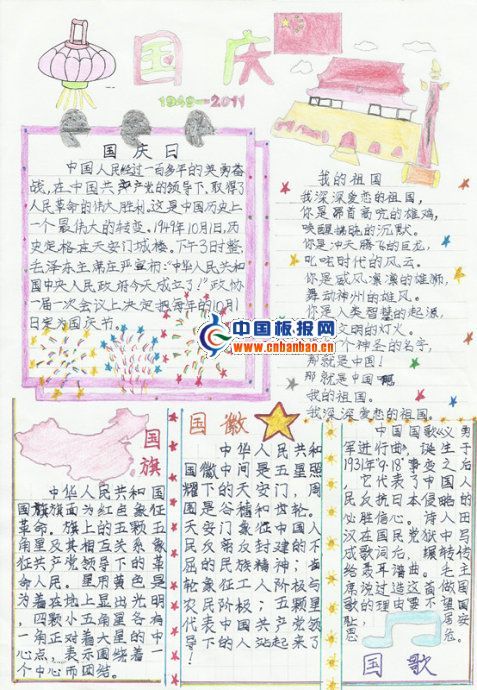 国庆
1949—2011
国庆日
中国人民经过一百多年的英勇奋
战,在中国共产党的领导下,取得了
人民革命的伟大胜利。这是中国历史上
一个最伟大的转变。1949年10月1日,历
史定格在天安门城楼。下午3时整,
毛泽东主席庄严宣布:"中华人民共和
国中央人民政府今天成立了!"政协
一届一次会议上决定把每年的10月1
日定为国庆节
我的祖国
我深深爱恋的祖国,
你是昂首高吭的雄鸡,
唤醒拂晓的沉默,
你是冲天腾飞的巨龙,
叱咤时代的风云。
你是威风凛凛的雄狮,
舞动神州的雄风。
你是人类智慧的起源,
文明的灯火。
个神圣的名字,
那就是中国!
那就是中国啊
我的祖国。
我深深爱恋的祖国。
中国板报网
www.cnbanbao.cn
国旗
中华人民共和国
国旗旗面为红色象征
革命。旗上的五颗五
角星及其相互关系象
征共产党领导下的革
命人民。星用黄色是
为着在地上显出光明
,四颗小五角星各有
一角正对着大星的中
心点,表示围绕着一
个中心而团结。
国徽
中华人民共和
国徽中间是五星照
耀下的天安门,周
围是谷穗和齿轮。
天安门象征中国人
民反帝反封建的不
屈的民族精神;齿
轮象征工人阶级与
农民阶级;五颗星
代表中国共产党领
导下的人站起来了
!
中国国歌《义勇
军进行曲》,诞生于
1931年"9·18"事变之后
,它代表了中国人
民反抗日本侵略的
必胜信心。诗人田
汉在国民党狱中写
成歌词允,辗转传
给聂耳谱曲。毛主
席说过造这首做国
歌的理由要不望国
安思
国歌